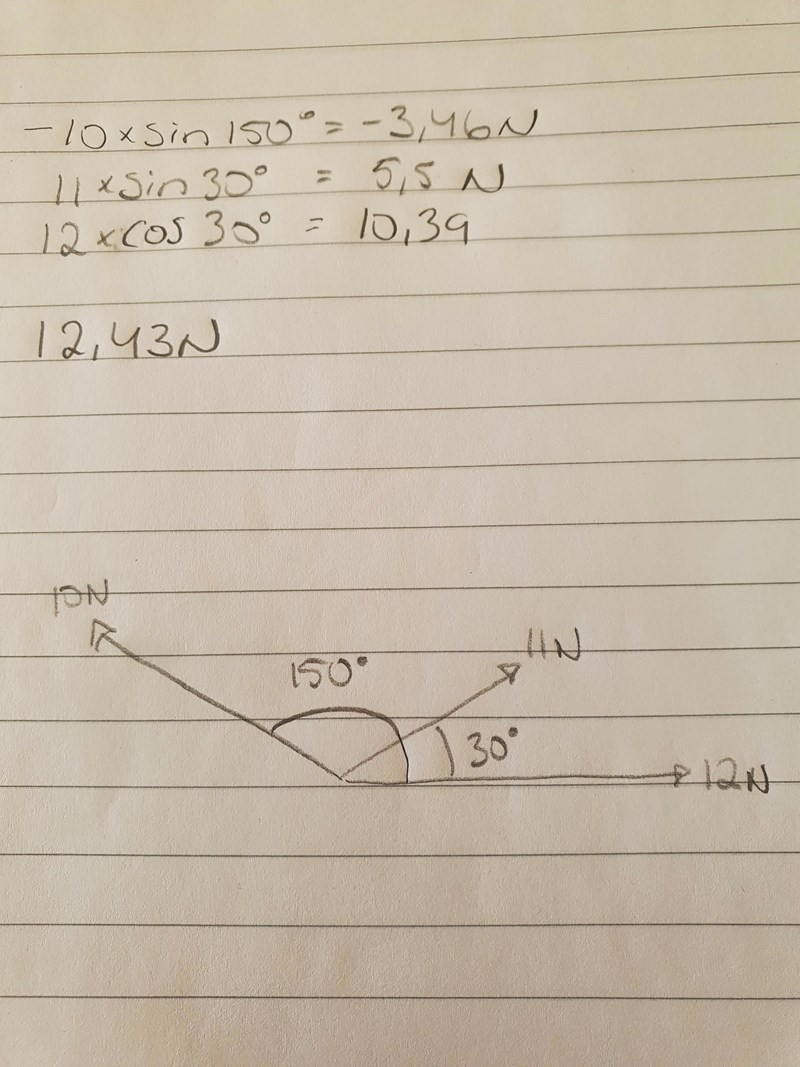 -10 x sin 150° = -3,46N
11 x sin 30° = 5,5 N
12 x cos 30° = 10,39
12,43N
10N
11N
150°
30°
12N